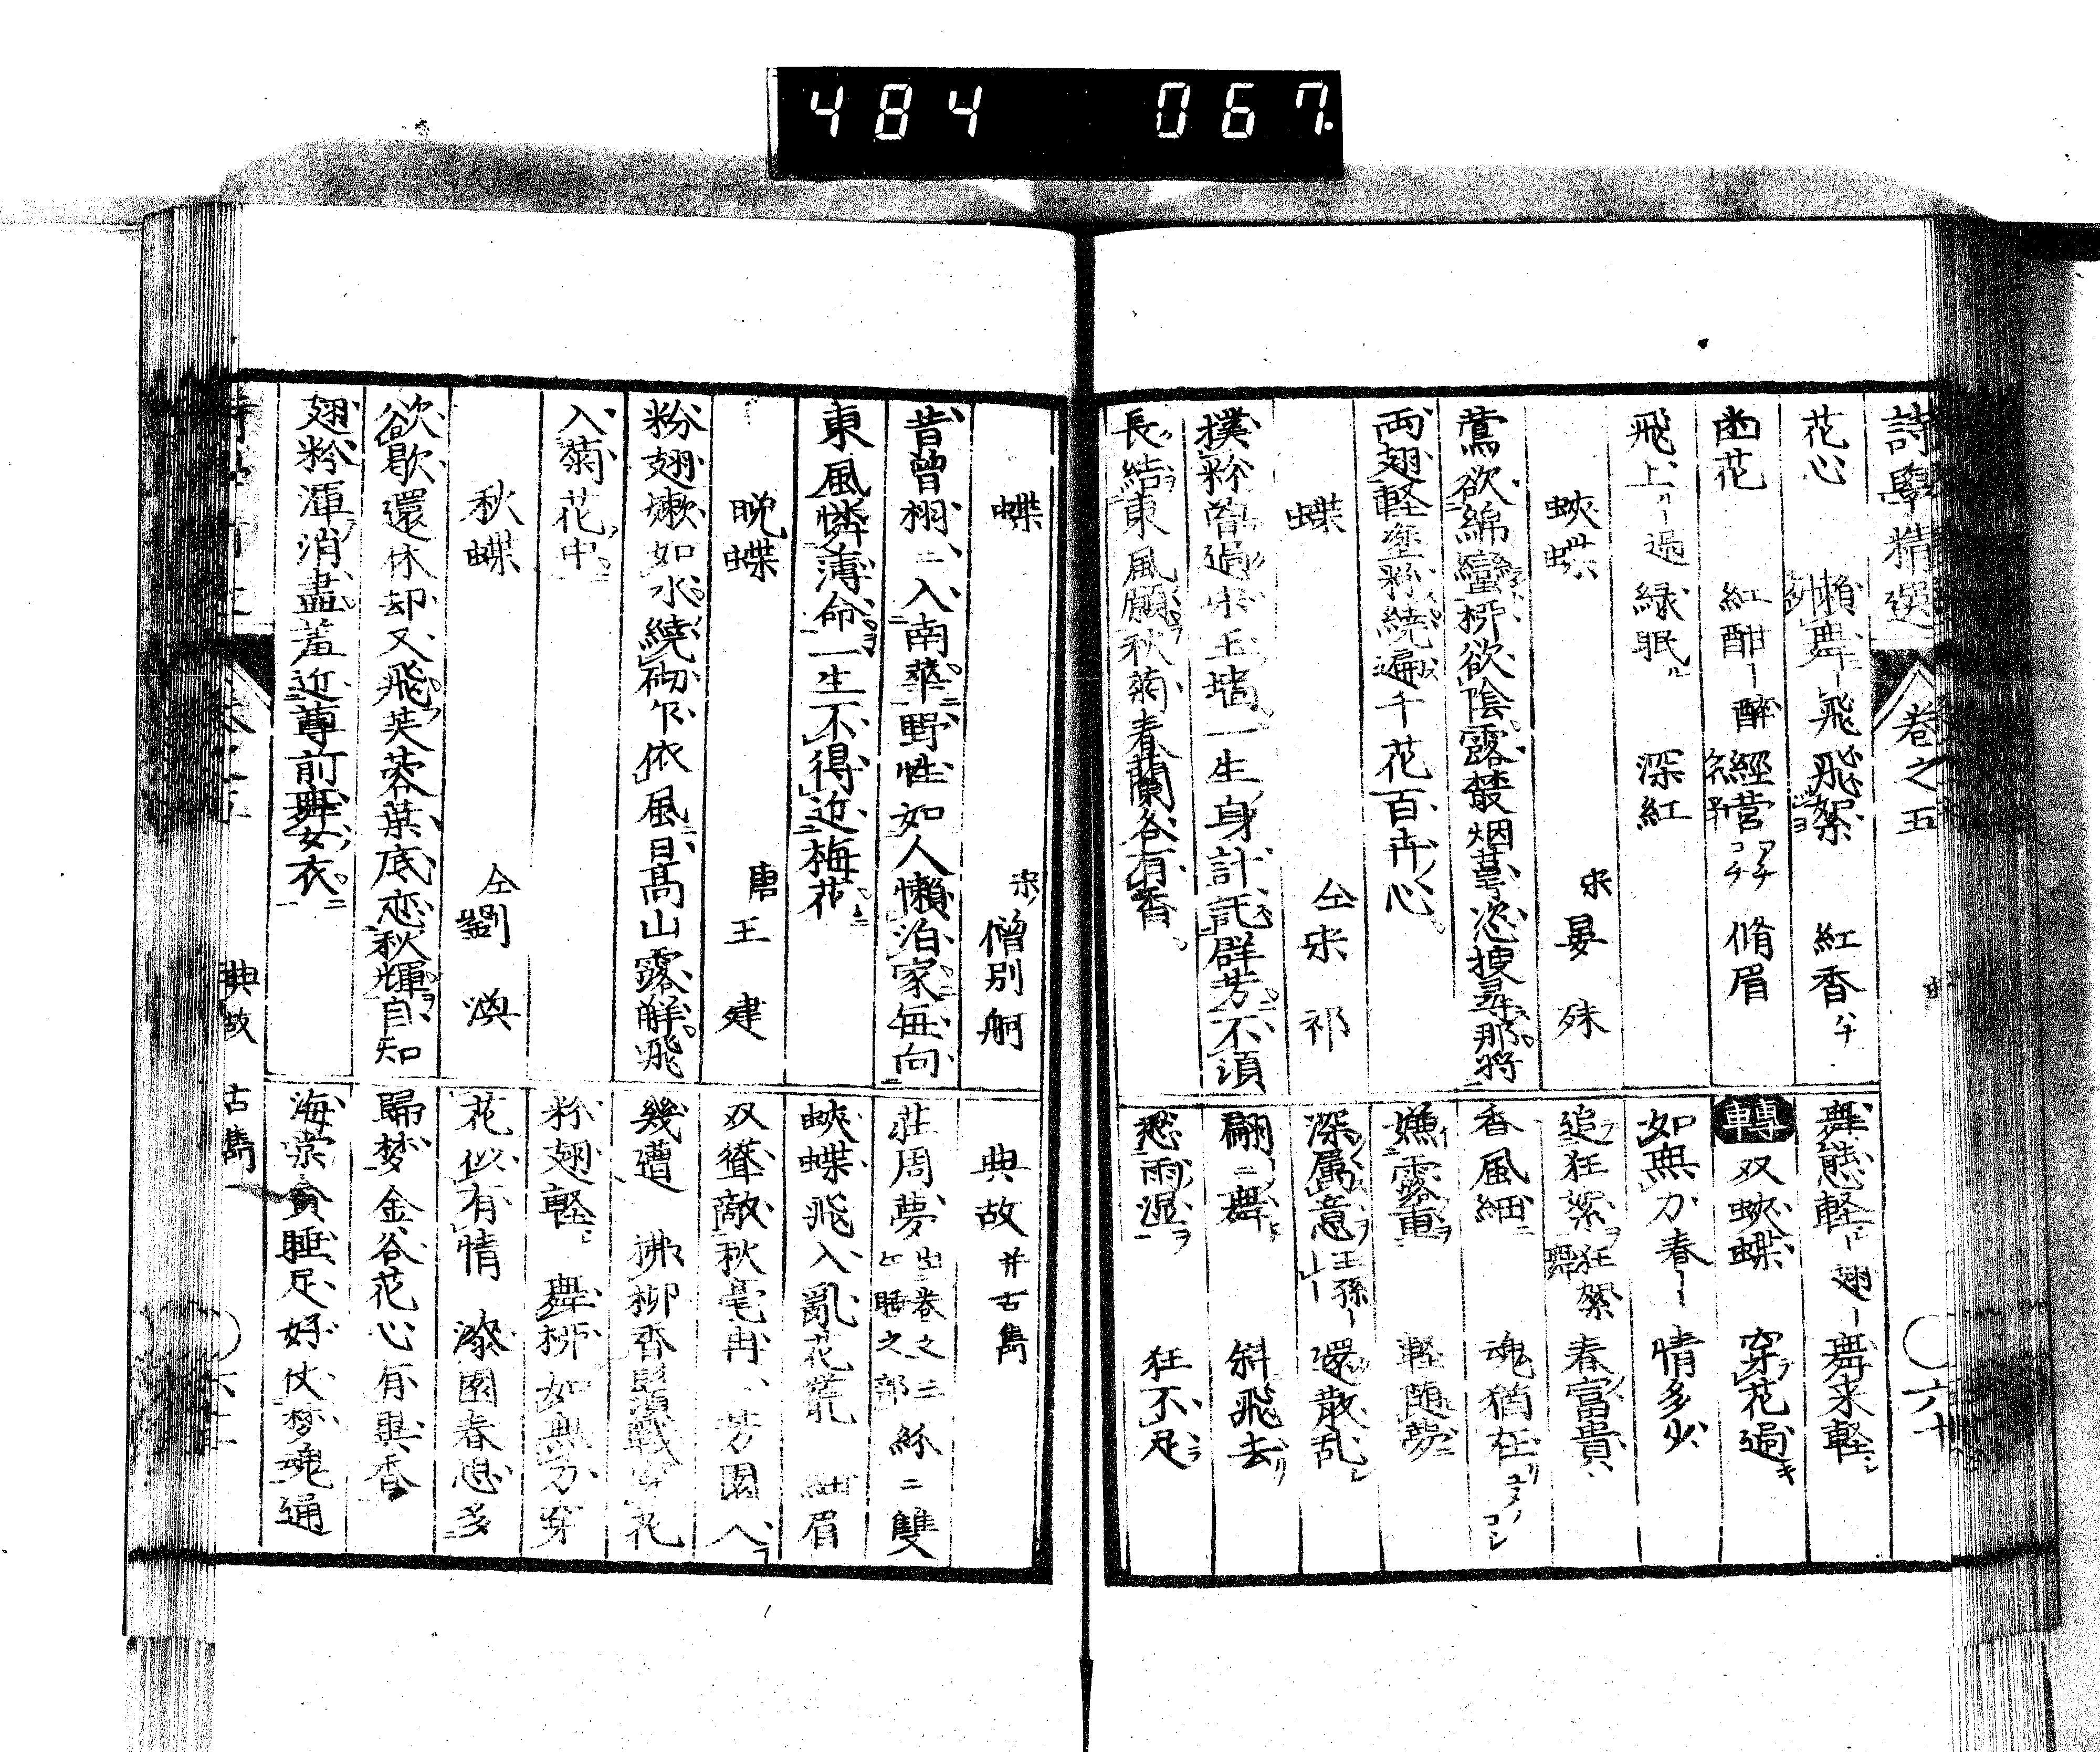 484 067
詩學精選 卷之五 六十
花心 懶舞ー飛 飛絮 紅香
幽花 紅酣ー醉 經営 脩眉
飛上ー過 緑眠 深紅
蛺蝶 宋晏殊
鶯欲綿蠻柳欲陰露叢烟蕚恣捜尋那将
両翅軽塗粉繞遍千花百卉心
蝶 仝宋祁
撲粉曾過宋玉墻一生身計託群芳不須
長結東風願秋菊春蘭各有香
舞態軽ー翅ー舞来軽
轉 双蛺蝶 穿花過
如無力春ー 情多少
追狂絮狂絮舞 春富貴
香風細 魂猶在
嫌露重 軽随夢
深属意王孫ー 還散乱
翩〻舞 斜飛去
愁雨湿 狂不足
蝶 宋僧別舸
昔曾栩〻入南華野性如人懶泊家毎向
東風憐薄命一生不得近梅花
晩蝶 唐王建
粉翅嫩如水繞砌乍依風日高山露解飛
入菊花中
秋蝶 仝劉渙
欲歇還休却又飛芙蓉葉底恋秋輝自知
翅粉渾消盡羞近尊前舞女衣
典故并古雋
荘周夢 出卷之二 睡之部 絲〻雙
蛺蝶飛入亂花叢 細眉
双聳敵秋毫冉〻芳園人
幾遭 拂柳香鬚戦 穿花
粉翅軽 舞柳如無力穿
花似有情 漆園春思多
歸夢金谷花心有異香
海棠貪睡足好伏夢魂通
典故 古雋